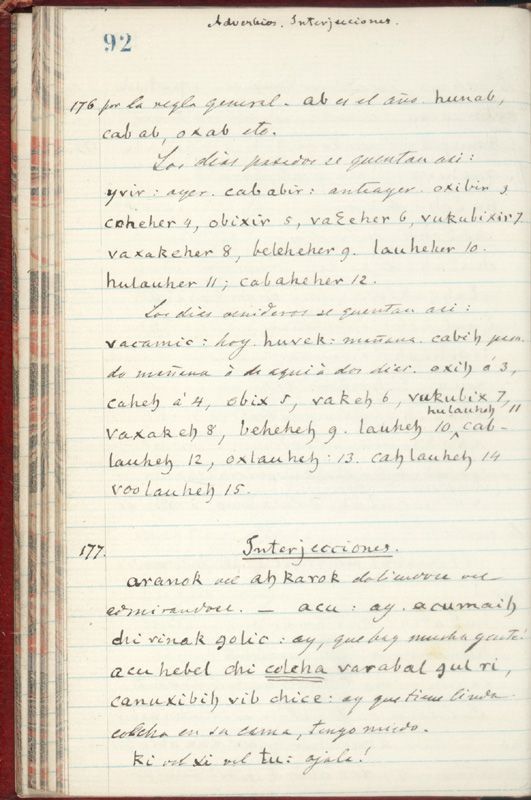 Adverbios. Interjecciones.
92
176 por la regla general. ab es el año. hunab,
cab ab, oxab etc.
Los dias pasados se quentan asi:
yvir: ayer. cab abir: anteayer. oxibir 3
coheher 4, obixir 5, vaɛeher 6, vukubixir 7
vaxakeher 8, beleheher 9. lauheher 10.
hulauher 11; cabaheher 12.
Los dias venideros se quentan asi:
vacamic: hoy. huvek: mañana. cabih pasa-
do mañana ò de aqui à dos dias. oxih ó 3,
caheh á 4, obix 5, vakeh 6, vukubix 7,
hulauheh 11
vaxakeh 8, beheheh 9. lauheh 10, cab-
lauheh 12, oxlauheh: 13. cahlauheh 14
voolauheh 15.
177. Interjecciones.
aranok vel ah karok doliendose vel
admirandose. — acu: ay. acumaih
chi vinak golic: ay, que hay mucha gente!
acu hebel chi colcha varabal gul ri,
canuxibih vib chice: ay que tiene linda
colcha en su cama, tengo miedo.
ki vel xi vel tu: ojala!